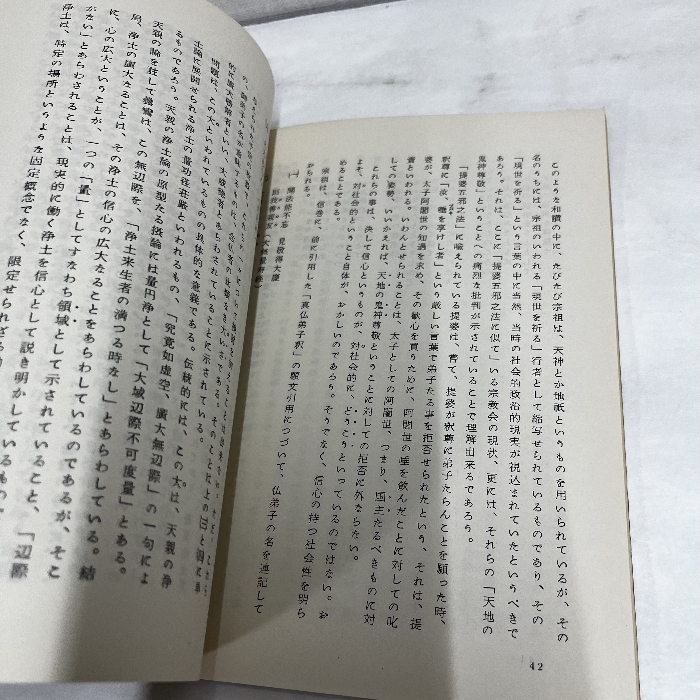 このような和讃の中に、たびたび宗祖は、天神とか地祇というものを用いられているが、その
名のうちには、宗祖のいわれる「現世を祈る」行者として描写せられているものであり、その
「現世を祈る」という言葉の中に当然、当時の社会的政治的現実が視込まれていたというべきで
あろう。それは、ここに「提婆五邪之法に似て」いる宗教会の現状、更には、それらの「天地の
鬼神尊敬」ということへの痛烈な批判が示されていることで理解出来るであろう。
「提婆五邪之法」に喩えられている提婆は、嘗て、提婆が釈尊に弟子たらんことを願った時、
釈尊に「汝、唾を享けし者」という厳しい言葉で弟子たる事を拒否せられたという、それは、提
婆が、太子阿闍世の知遇を求め、その歓心を買うために、阿闍世の唾を飲んだことに対しての叱
責といわれる。いわんとせられることは、太子としての阿闍世、つまり、国主たるべきものに対
しての姿勢、いいかえれば、天地の鬼神尊敬ということに対しての拒否に外ならない。
これらの事は、決して信心というものが、対社会的に、どうこういっているのではない。お
よそ、対社会的にということ自体が、おかしいのであろう。そうでなく、信心の持つ社会性を明ら
めることであろう。
宗祖は、信巻に、前に引用した「真仏弟子釈」の願文引用につづいて、仏弟子の名を連記して
かられる。
(一) 聞法能不忘 見敬得大慶
42
問題は、この大といわれているものの具体的な意義である。伝統的には、この大は、天親の浄
土論に展開せられる浄土の量功徳荘厳といわれるもの、「究竟如虚空、廣大無辺際」の一句によ
るものであろう。天親の浄土論の原型たる摂論には量円浄として「大城辺際不可度量」とある。
天親の論を註して曇鸞は、この無辺際を、「浄土来生者の満つる時なし」とあらわしている。結
局、浄土の廣大なることは、その浄土の信心の広大なることをあらわしているのであるが、そこ
に、心の広大ということが、一つの「量」としてすなわち領域として示されていること、「辺際
がない」とあらわされることは、現実的に働く浄土を信心として説き明かしているもの、
浄土は、特定の場所というような固定概念でなく、限定せられざる